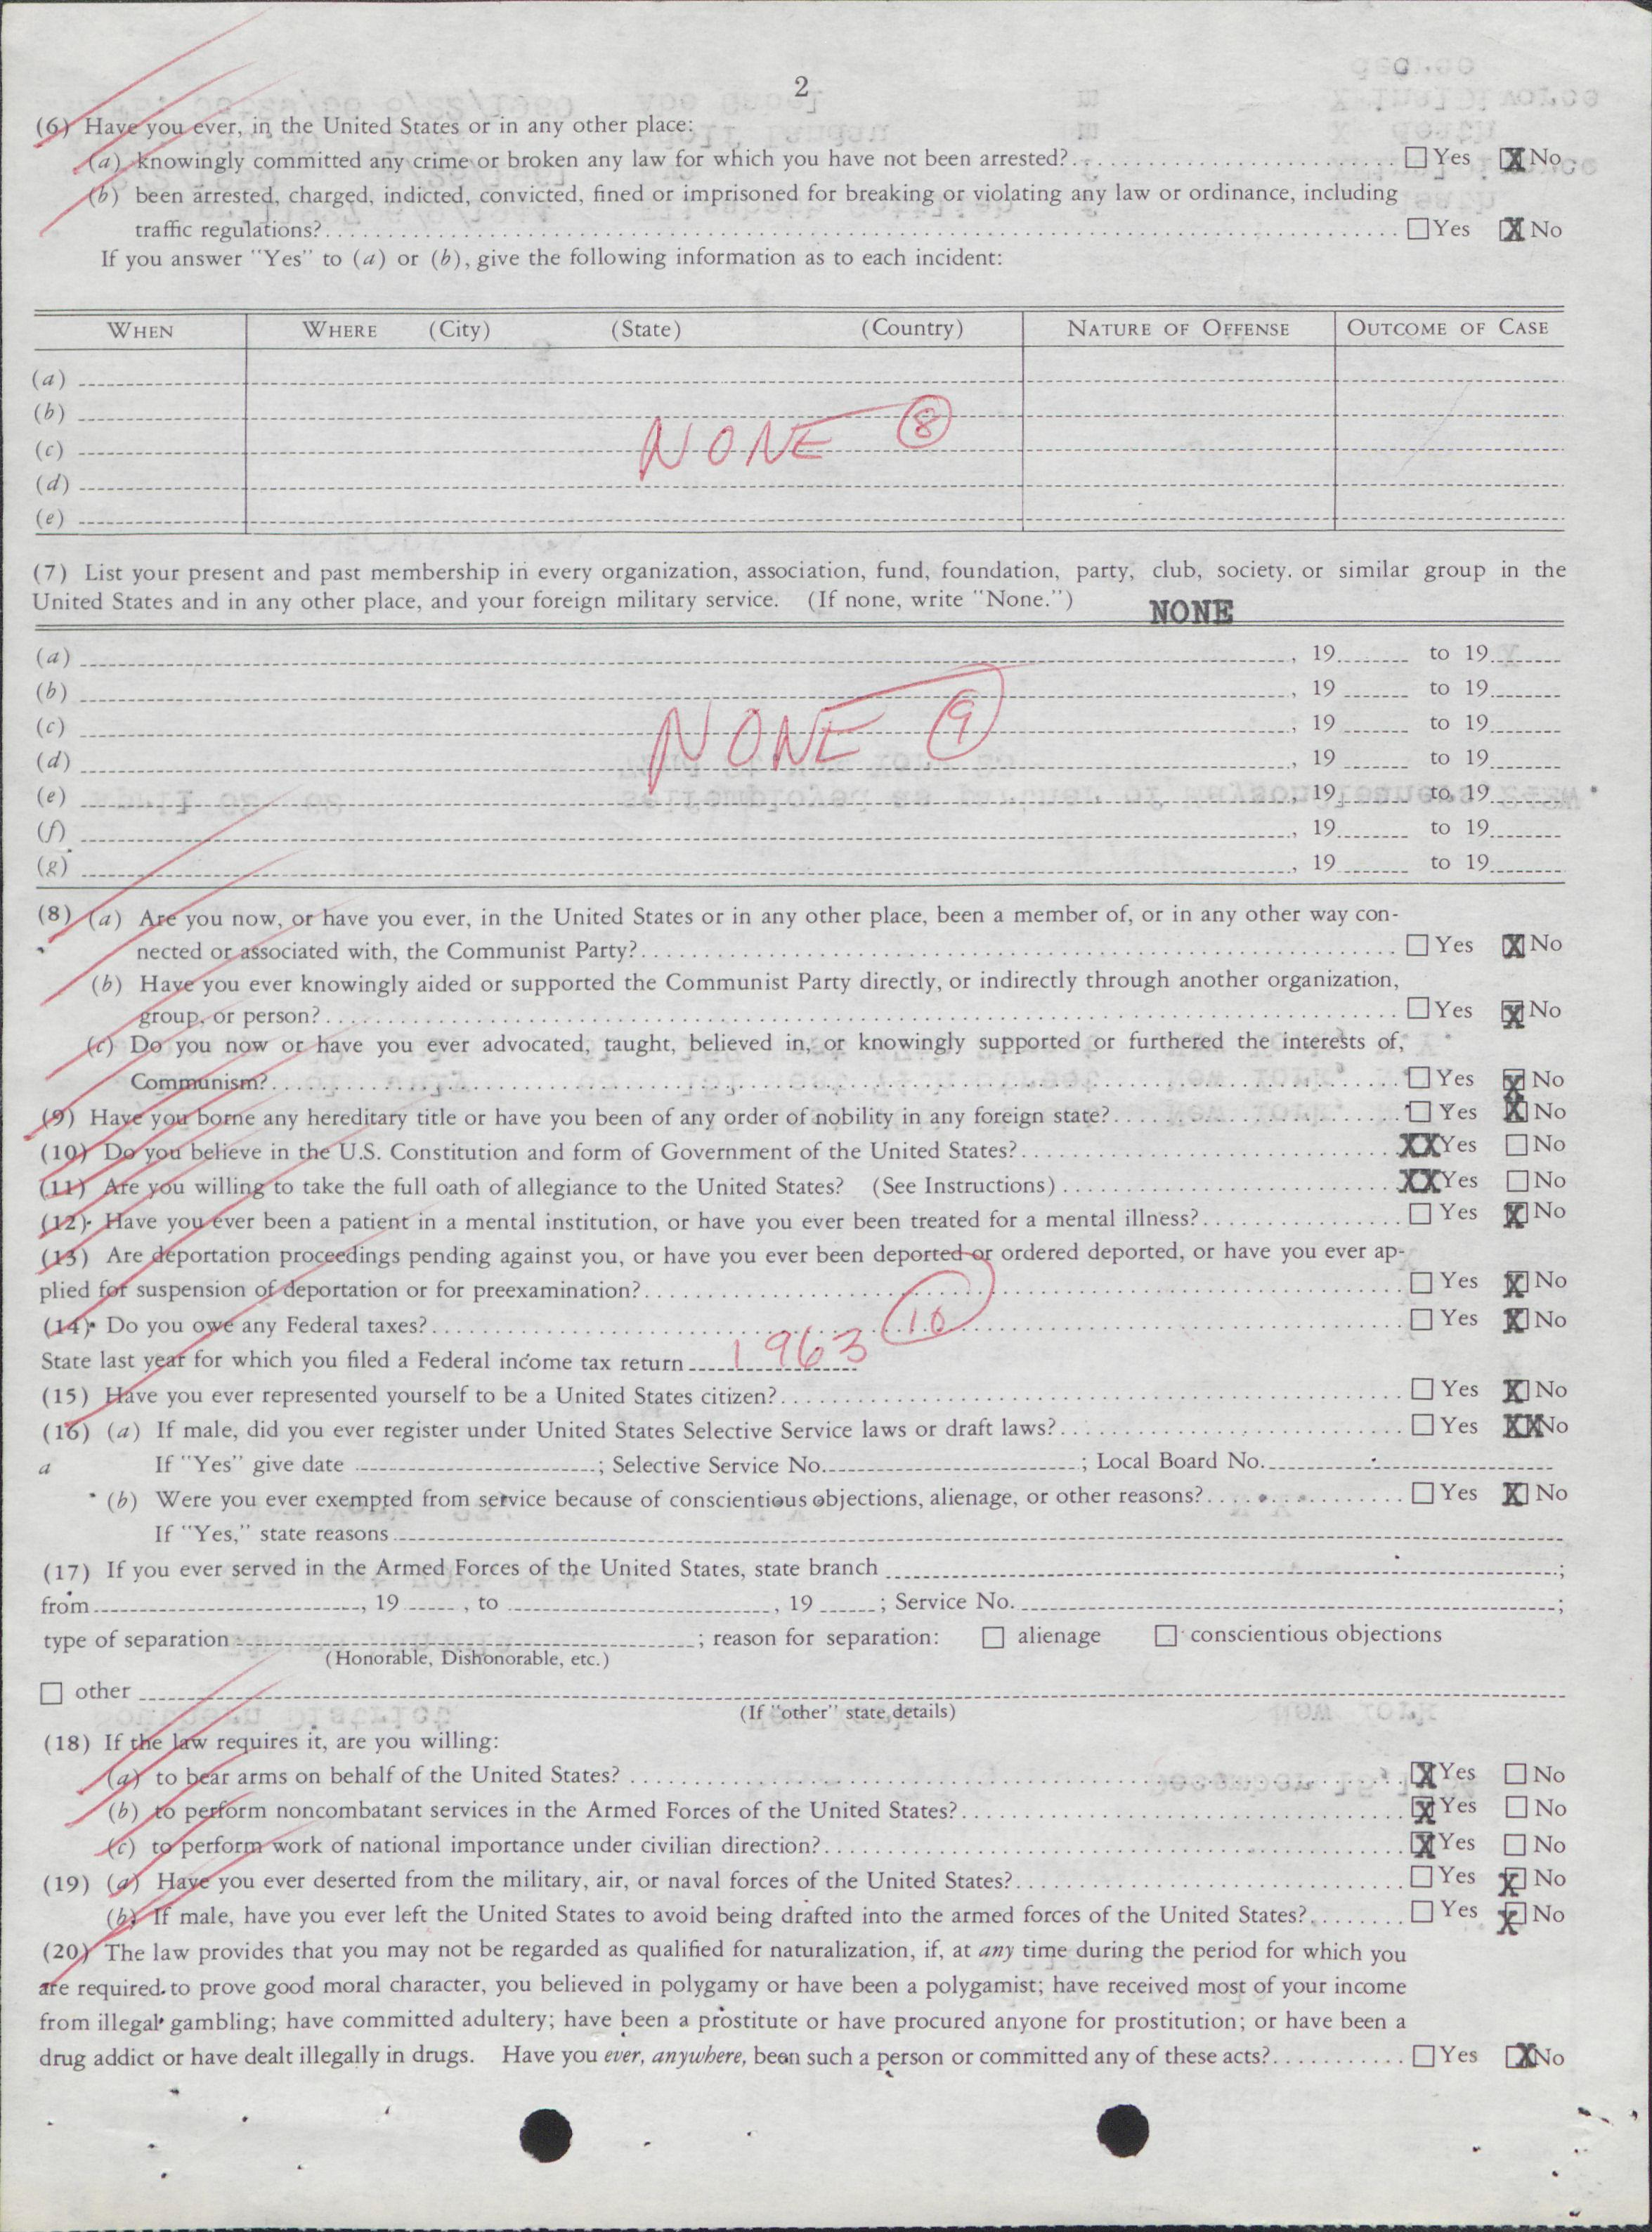 2
(6) Have you ever, in the United States or in any other place:
(a) knowingly committed any crime or broken any law for which you have not been arrested?.... ☐ Yes ☒ No
(b) been arrested, charged, indicted, convicted, fined or imprisoned for breaking or violating any law or ordinance, including
traffic regulations?.... ☐ Yes ☒ No
If you answer "Yes" to (a) or (b), give the following information as to each incident:
WHEN WHERE (City) (State) (Country) NATURE OF OFFENSE OUTCOME OF CASE
(a)
(b)
(c) NONE 8
(d)
(e)
(7) List your present and past membership in every organization, association, fund, foundation, party, club, society. or similar group in the
United States and in any other place, and your foreign military service. (If none, write "None.") NONE
(a) , 19 to 19
(b) , 19 to 19
(c) , 19 to 19
NONE 9
(d) , 19 to 19
(e) , 19 to 19
(f) , 19 to 19
(g) , 19 to 19
(8) (a) Are you now, or have you ever, in the United States or in any other place, been a member of, or in any other way con-
nected or associated with, the Communist Party?.... ☐ Yes ☒ No
(b) Have you ever knowingly aided or supported the Communist Party directly, or indirectly through another organization,
group, or person?.... ☐ Yes ☒ No
(c) Do you now or have you ever advocated, taught, believed in, or knowingly supported or furthered the interests of,
Communism?.... ☐ Yes ☒ No
(9) Have you borne any hereditary title or have you been of any order of nobility in any foreign state?.... ☐ Yes ☒ No
(10) Do you believe in the U.S. Constitution and form of Government of the United States?.... XX Yes ☐ No
(11) Are you willing to take the full oath of allegiance to the United States? (See Instructions).... XX Yes ☐ No
(12) Have you ever been a patient in a mental institution, or have you ever been treated for a mental illness?.... ☐ Yes ☒ No
(13) Are deportation proceedings pending against you, or have you ever been deported or ordered deported, or have you ever ap-
plied for suspension of deportation or for preexamination?.... ☐ Yes ☒ No
(14) Do you owe any Federal taxes?.... 10 ☐ Yes ☒ No
State last year for which you filed a Federal income tax return 1963
(15) Have you ever represented yourself to be a United States citizen?.... ☐ Yes ☒ No
(16) (a) If male, did you ever register under United States Selective Service laws or draft laws?.... ☐ Yes XX No
a If "Yes" give date ; Selective Service No. ; Local Board No.
(b) Were you ever exempted from service because of conscientious objections, alienage, or other reasons?.... ☐ Yes ☒ No
If "Yes," state reasons
(17) If you ever served in the Armed Forces of the United States, state branch ;
from , 19 , to , 19 ; Service No. ;
type of separation ; reason for separation: ☐ alienage ☐ conscientious objections
(Honorable, Dishonorable, etc.)
☐ other
(If "other" state details)
(18) If the law requires it, are you willing:
(a) to bear arms on behalf of the United States?.... ☒ Yes ☐ No
(b) to perform noncombatant services in the Armed Forces of the United States?.... ☒ Yes ☐ No
(c) to perform work of national importance under civilian direction?.... ☒ Yes ☐ No
(19) (a) Have you ever deserted from the military, air, or naval forces of the United States?.... ☐ Yes ☒ No
(b) If male, have you ever left the United States to avoid being drafted into the armed forces of the United States?.... ☐ Yes ☒ No
(20) The law provides that you may not be regarded as qualified for naturalization, if, at any time during the period for which you
are required to prove good moral character, you believed in polygamy or have been a polygamist; have received most of your income
from illegal gambling; have committed adultery; have been a prostitute or have procured anyone for prostitution; or have been a
drug addict or have dealt illegally in drugs. Have you ever, anywhere, been such a person or committed any of these acts?.... ☐ Yes ☒ No